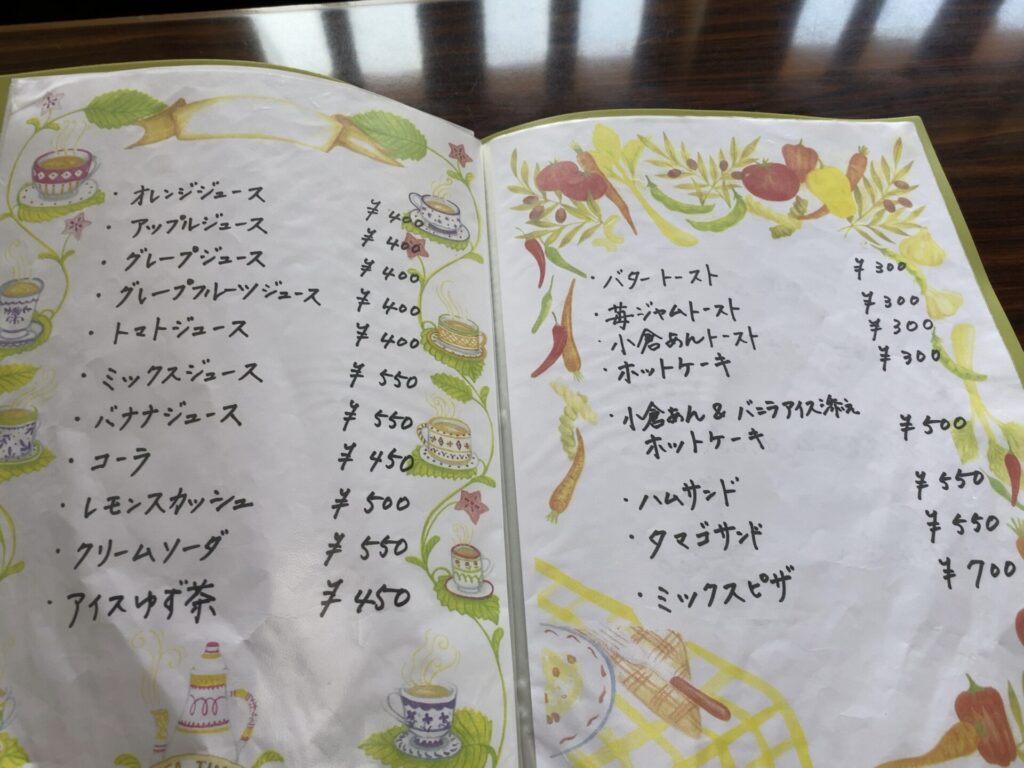 ・オレンジジュース ¥400
・アップルジュース ¥400
・グレープジュース ¥400
・グレープフルーツジュース ¥400
・トマトジュース ¥400
・ミックスジュース ¥550
・バナナジュース ¥550
・コーラ ¥450
・レモンスカッシュ ¥500
・クリームソーダ ¥550
・アイスゆず茶 ¥450
・バタートースト ¥300
・苺ジャムトースト ¥300
・小倉あんトースト ¥300
・ホットケーキ ¥300
・小倉あん&バニラアイス添え
ホットケーキ ¥500
・ハムサンド ¥550
・タマゴサンド ¥550
・ミックスピザ ¥700